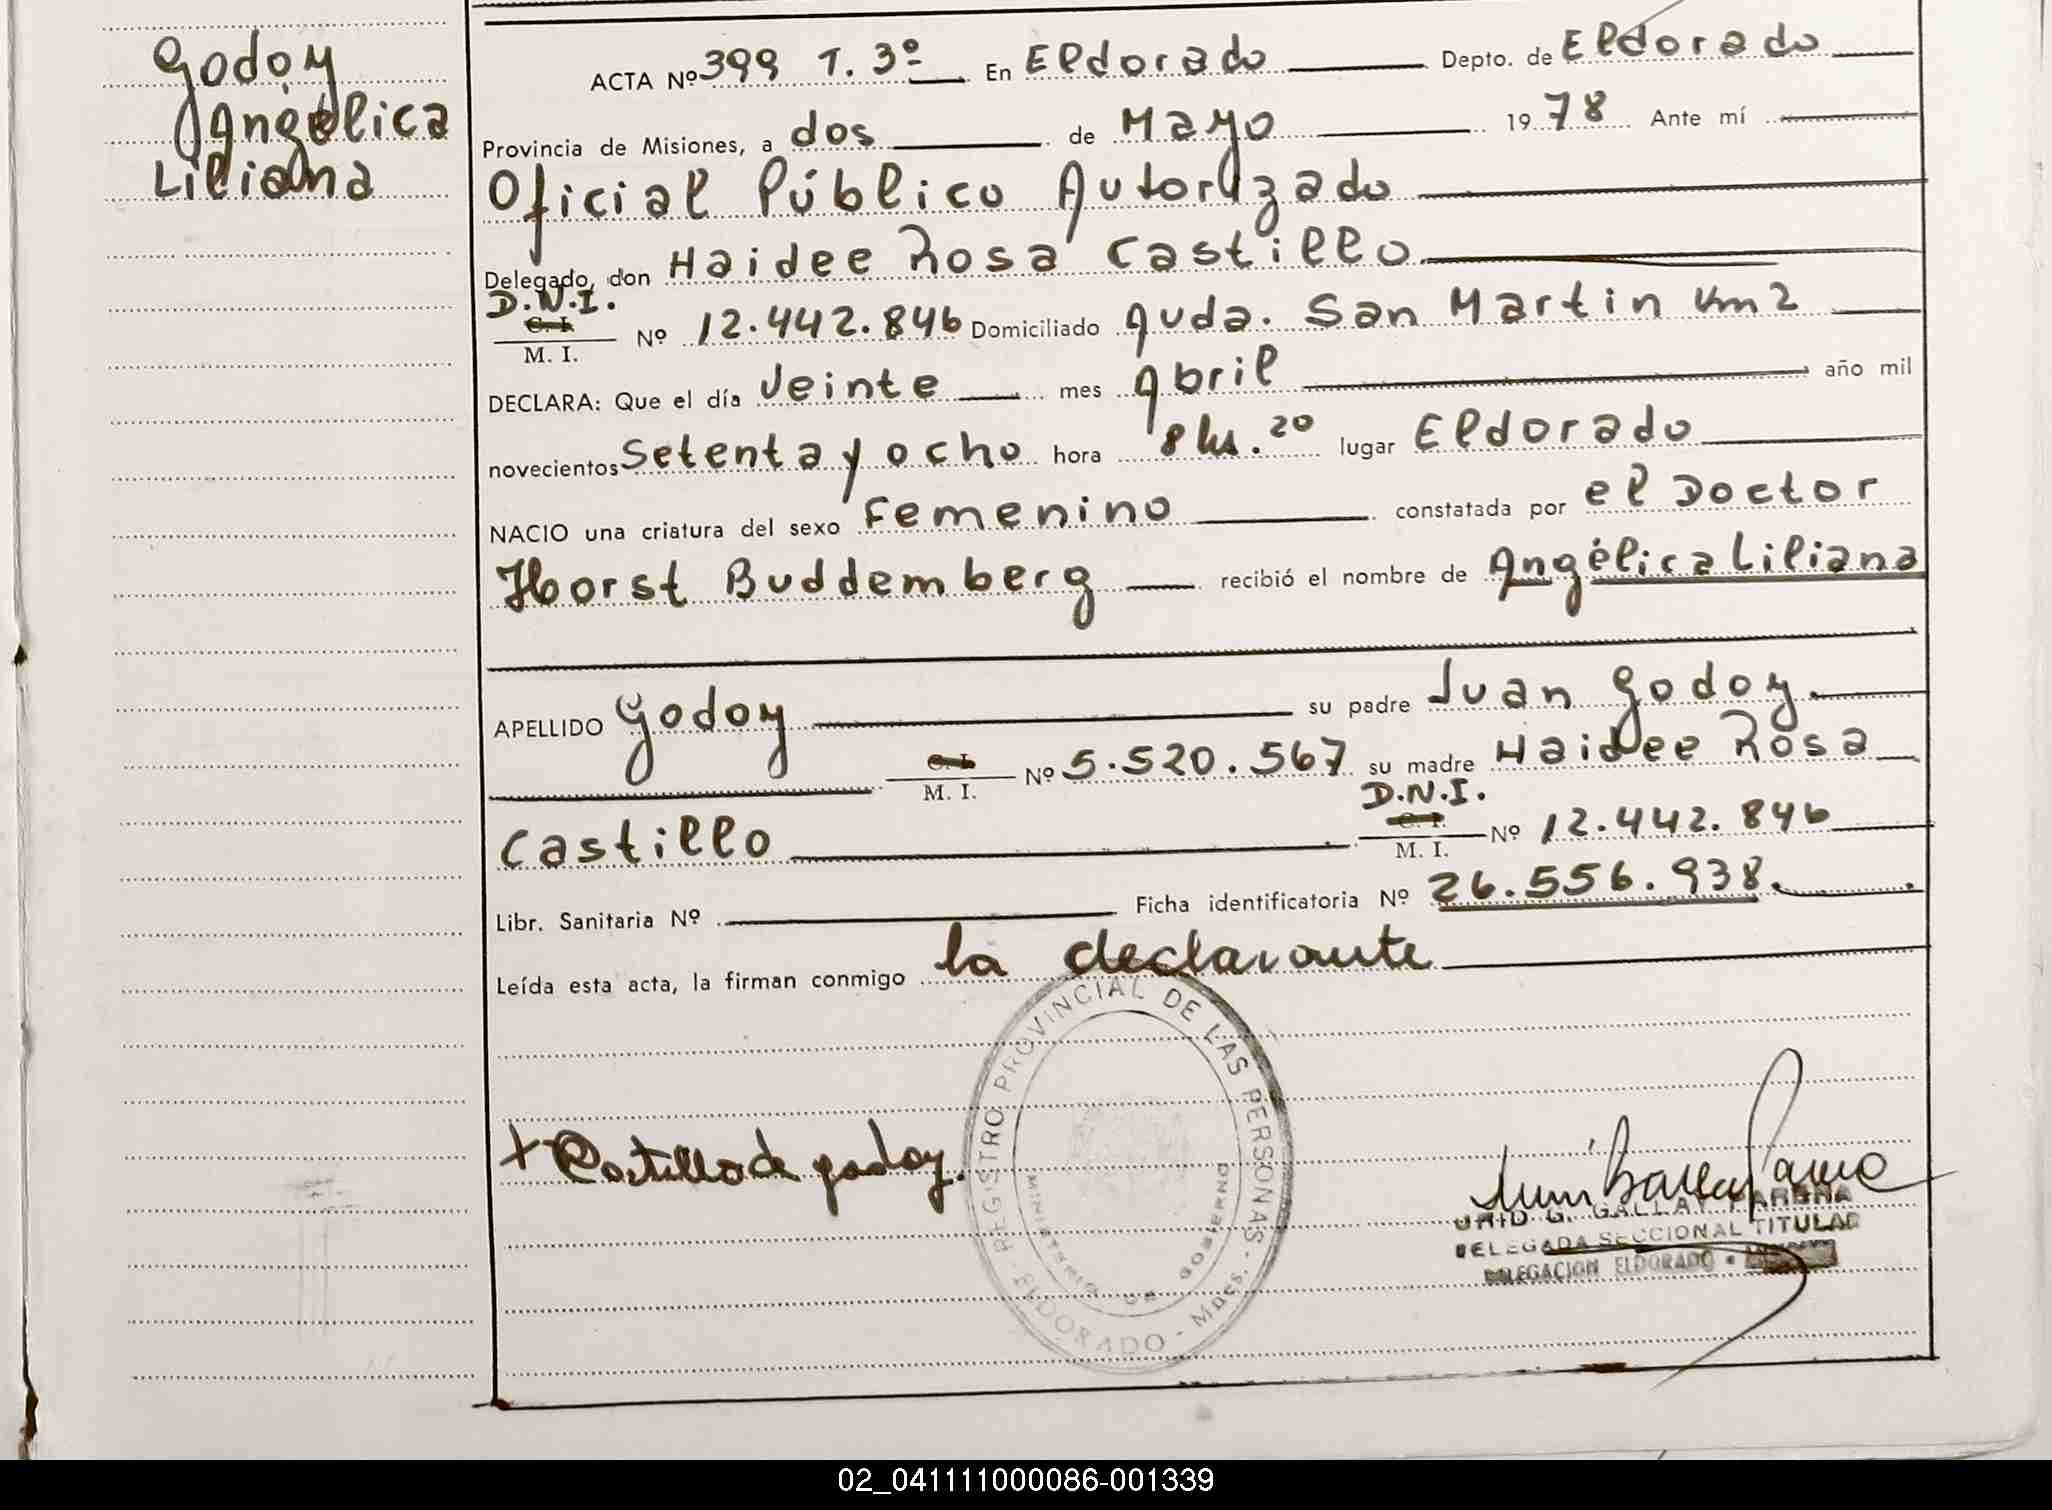 Godoy
Angélica
Liliana
ACTA Nº 399 T. 3º En Eldorado Depto. de Eldorado
Provincia de Misiones, a dos de Mayo 1978 Ante mí
Oficial Público Autorizado
Delegado, don Haidee Rosa Castillo
D.N.I.
C. I.
M. I. Nº 12.442.846 Domiciliado Avda. San Martin Km 2
DECLARA: Que el día Veinte mes Abril año mil
novecientos Setenta y ocho hora 8 hs. 20 lugar Eldorado
NACIO una criatura del sexo Femenino constatada por el Doctor
Horst Buddemberg recibió el nombre de Angélica Liliana
APELLIDO Godoy su padre Juan Godoy.
C. I.
M. I. Nº 5.520.567 su madre Haidee Rosa
D.N.I.
Castillo C. I.
M. I. Nº 12.442.846
Libr. Sanitaria Nº Ficha identificatoria Nº 26.556.938.
Leída esta acta, la firman conmigo la declarante
REGISTRO PROVINCIAL DE LAS PERSONAS - Mnes. - ELDORADO -
MINISTERIO DE GOBIERNO
+ Castillo de godoy.
G. GALLAY
DELEGADA SECCIONAL TITULAR
DELEGACION ELDORADO
02_041111000086-001339